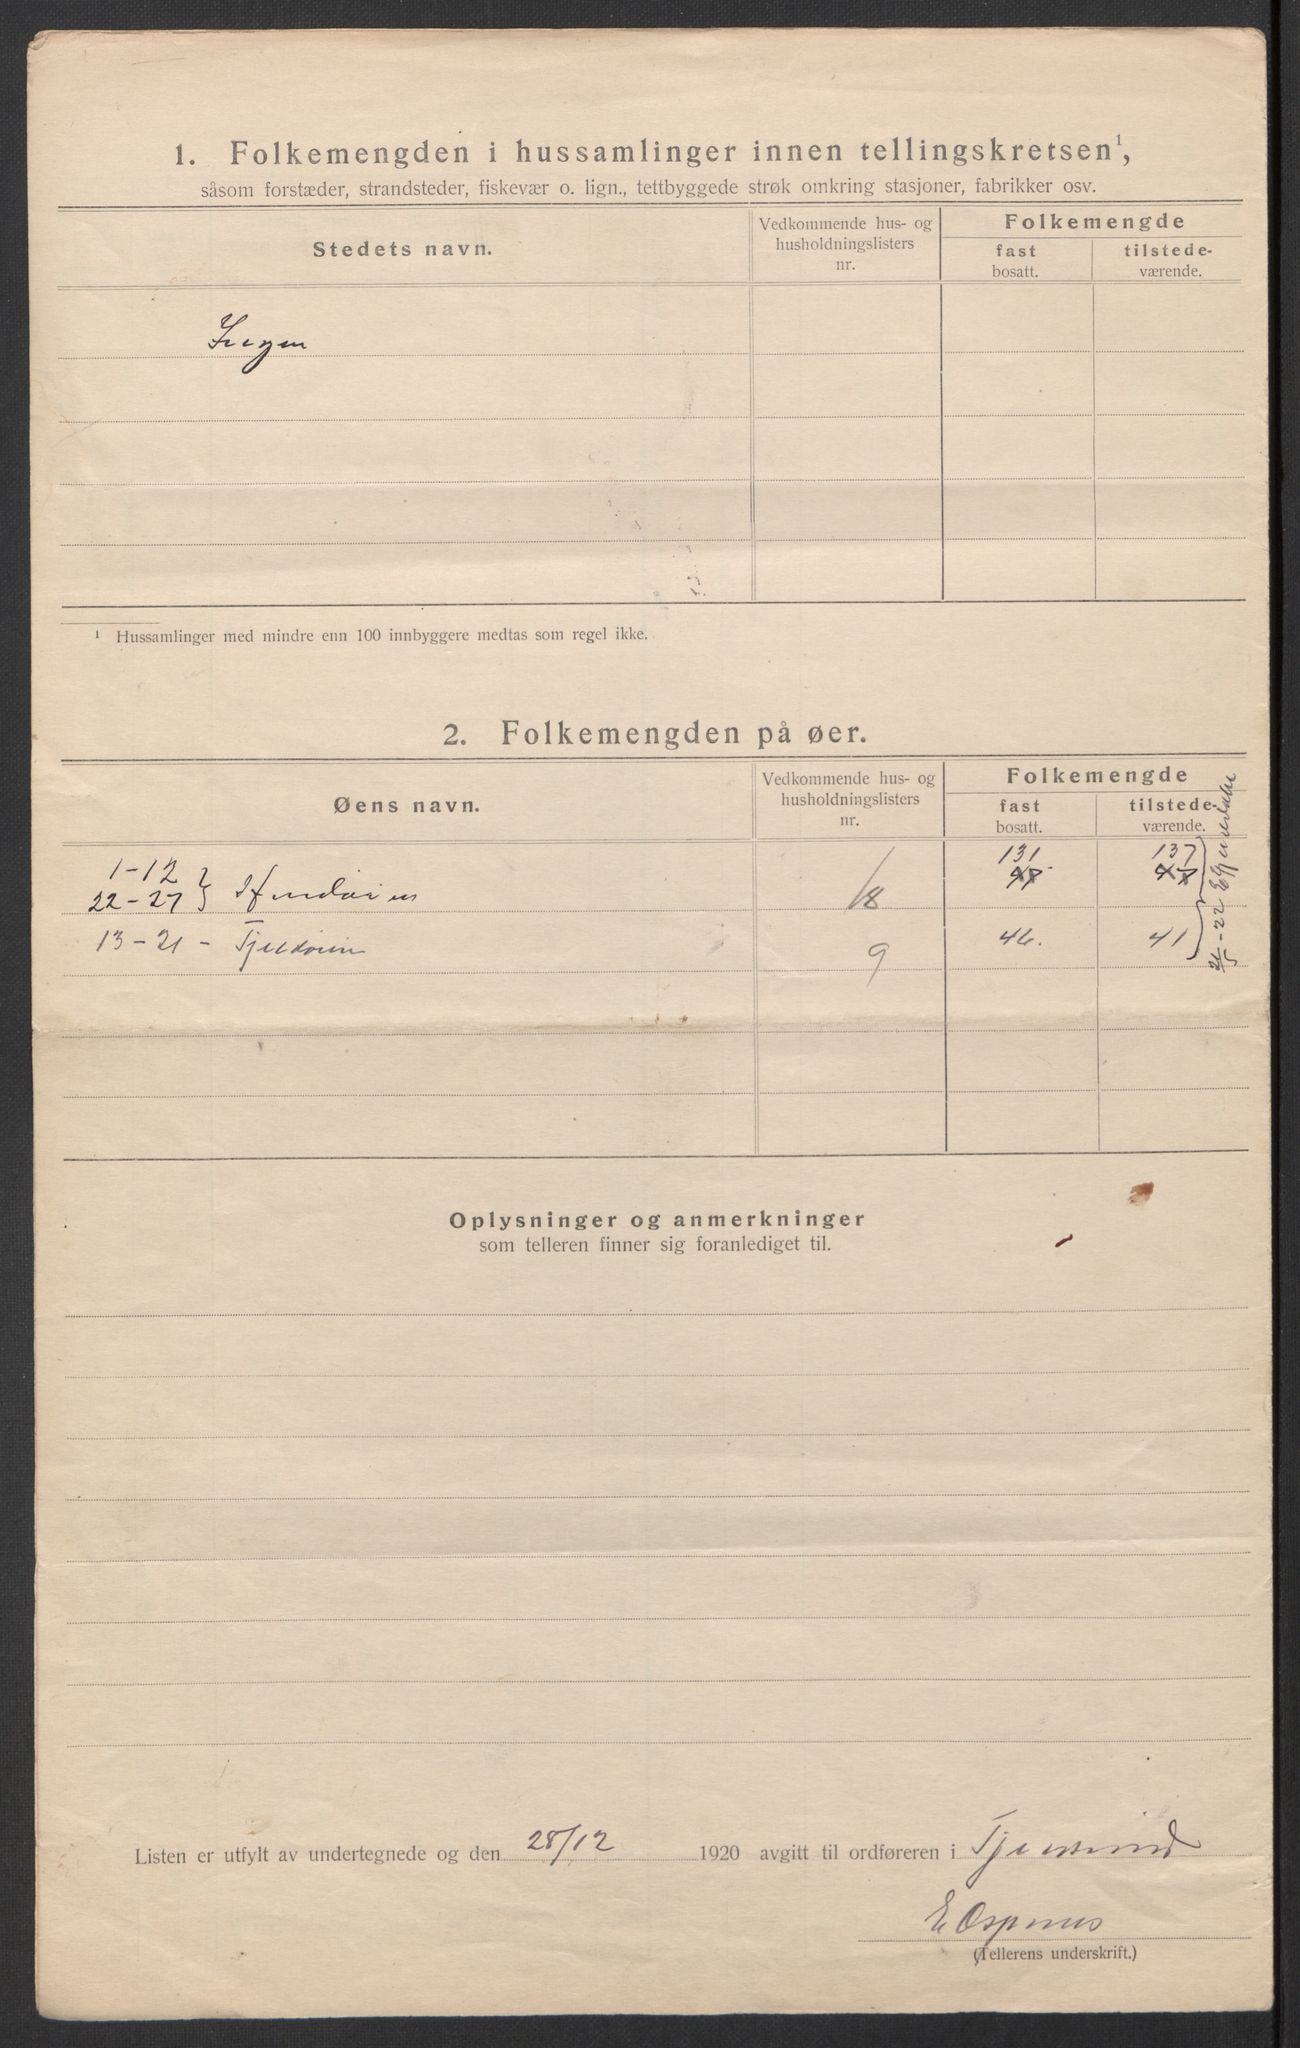 1. Folkemengden i hussamlinger innen tellingskretsen¹,
såsom forstæder, strandsteder, fiskevær o. lign., tettbyggede strøk omkring stasjoner, fabrikker osv.
Stedets navn.
Vedkommende hus- og husholdningslisters nr.
Folkemengde
fast bosatt.
tilstede-værende.
Ingen
¹ Hussamlinger med mindre enn 100 innbyggere medtas som regel ikke.
2. Folkemengden på øer.
Øens navn.
Vedkommende hus- og husholdningslisters nr.
Folkemengde
fast bosatt.
tilstede-værende.
1-12 131 137
22-27 18
13-21 - Tjeldøen 9 46. 41
Oplysninger og anmerkninger
som telleren finner sig foranlediget til.
Listen er utfylt av undertegnede og den 28/12 1920 avgitt til ordføreren i Tjeldsund
(Tellerens underskrift.)